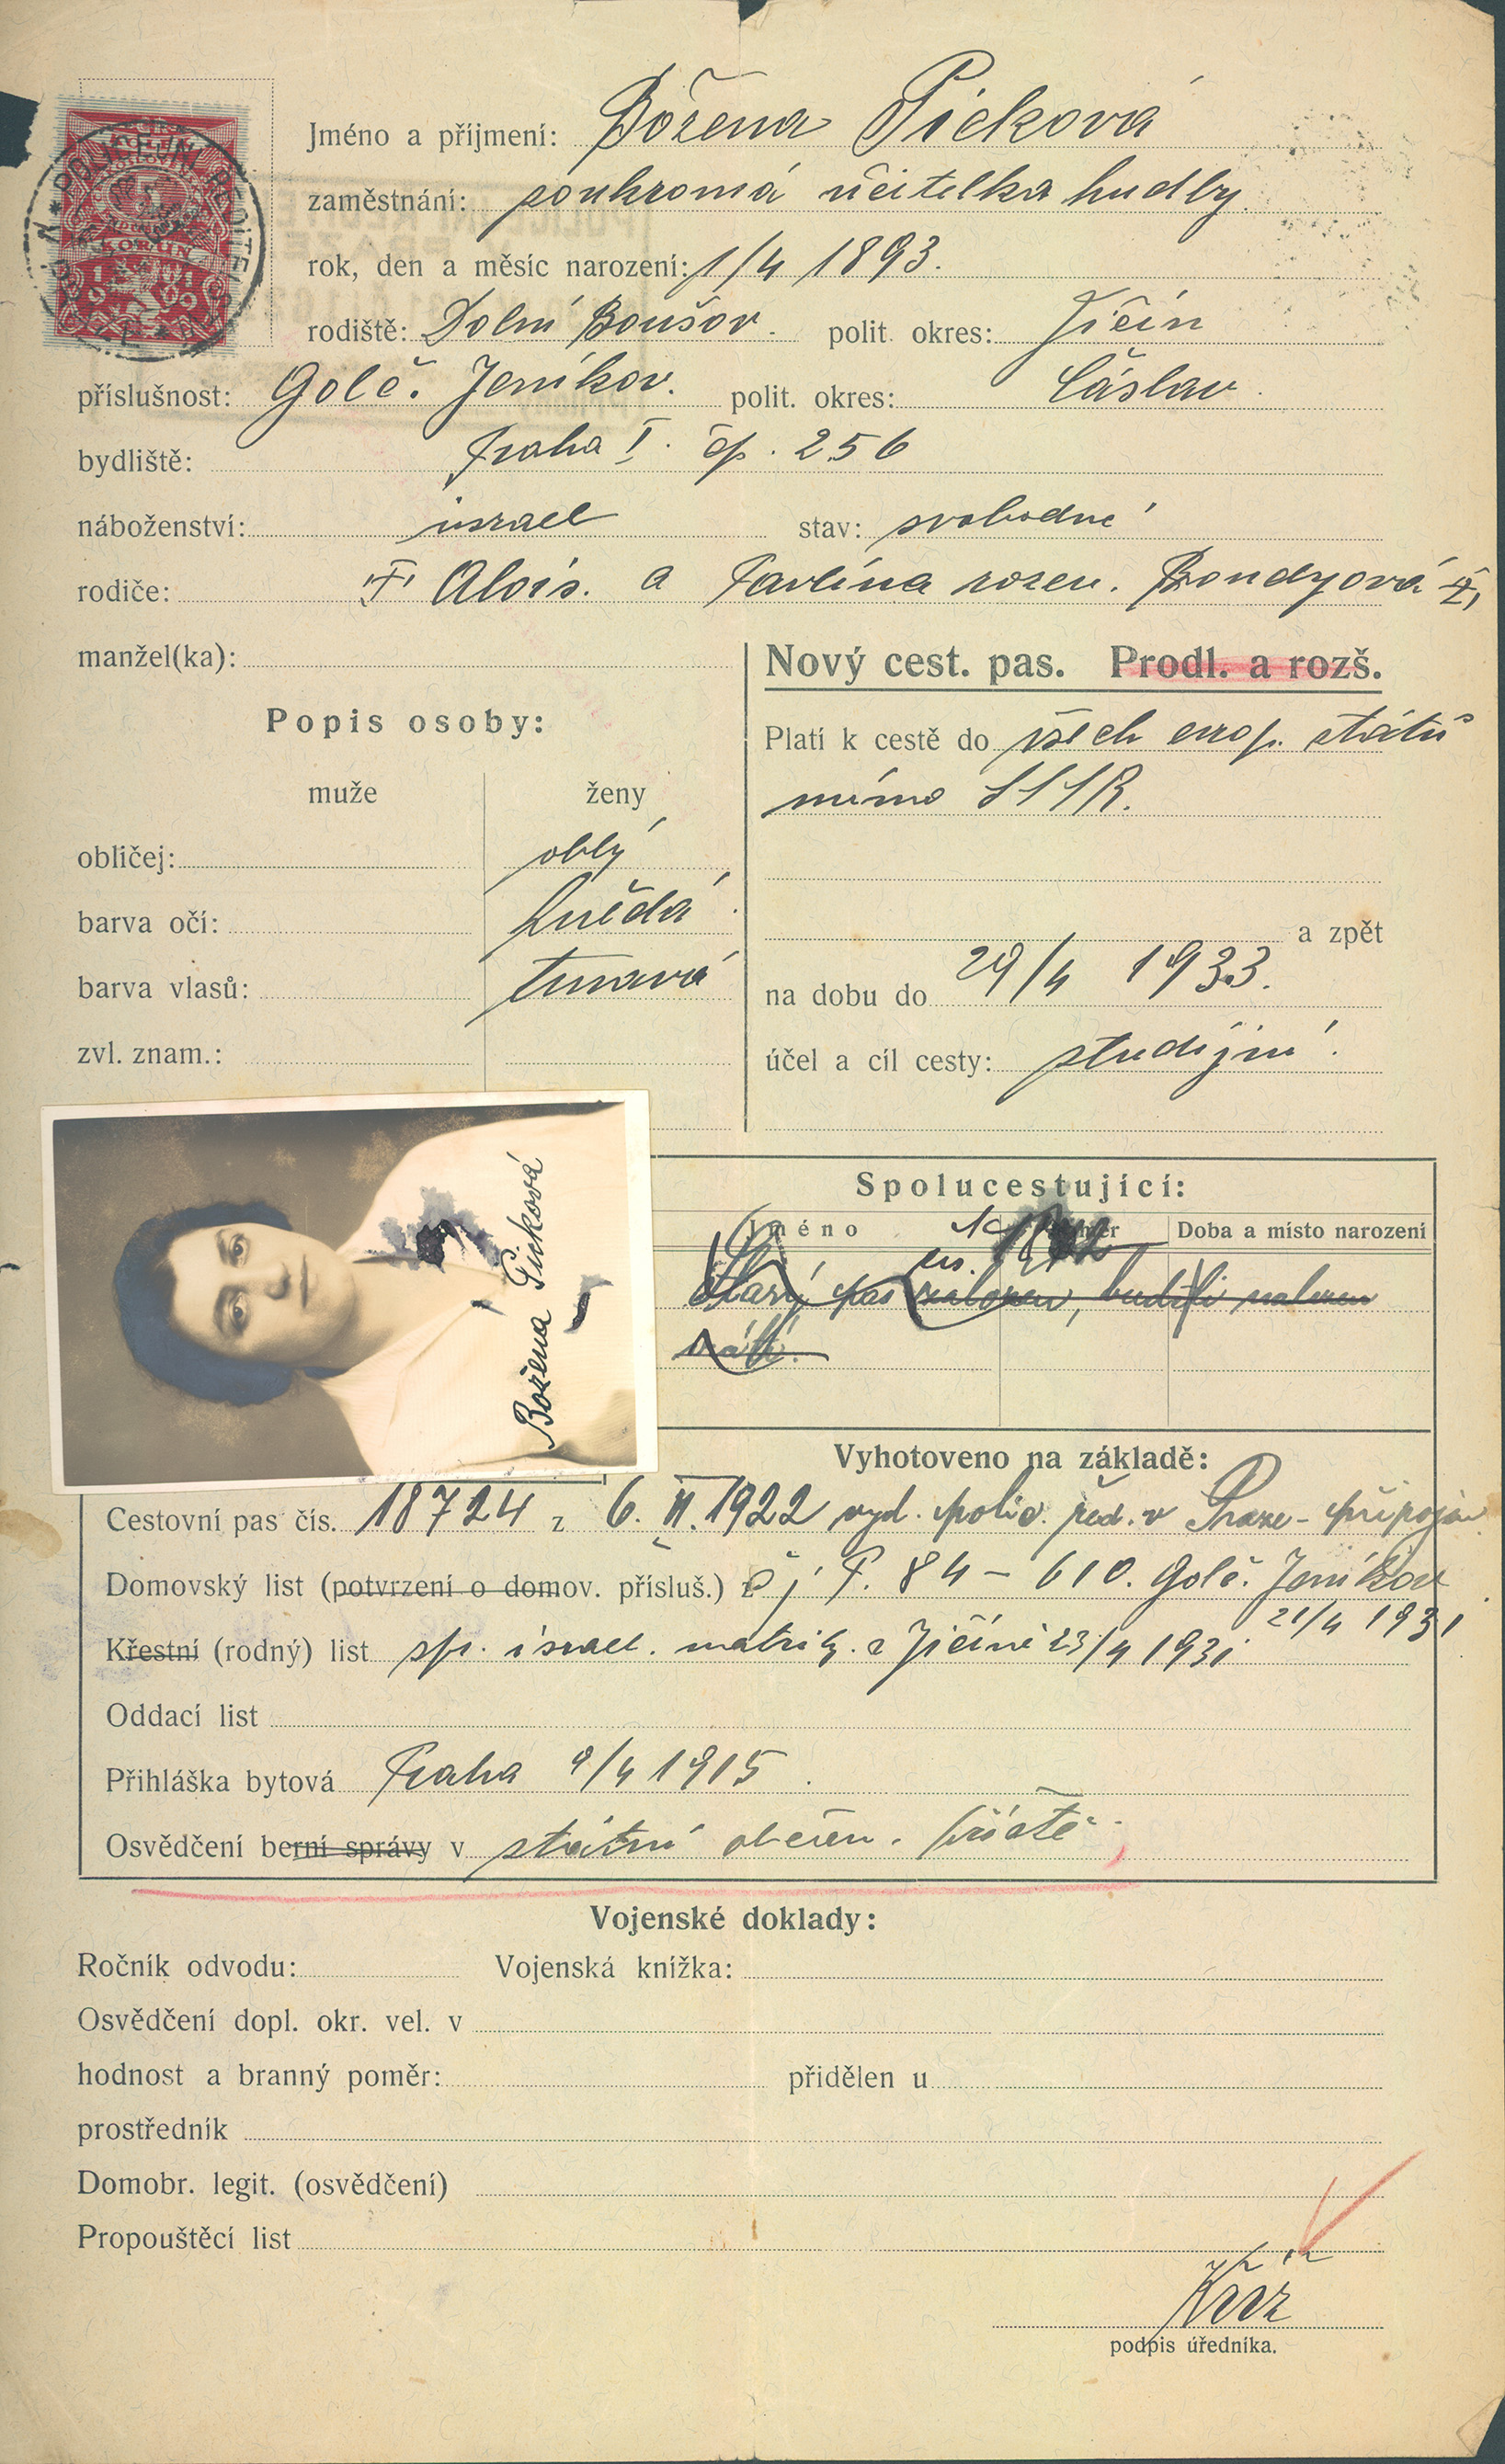 Jméno a příjmení: Božena Picková
zaměstnání: soukromá učitelka hudby.
rok, den a měsíc narození: 1/4 1893.
rodiště: Dolní Boušov. polit. okres: Jičín
příslušnost: Golč. Jeníkov. polit. okres: Čáslav.
bydliště: Praha I. čp. 256
náboženství: israel stav: svobodná
rodiče: Alois. a Pavlína rozen. Bondyová
manžel(ka):
Nový cest. pas. Prodl. a rozš.
Popis osoby:
muže ženy
obličej: oblý
barva očí: hnědá
barva vlasů: tmavá
zvl. znam.:
Platí k cestě do všech evrop. států
mimo SSSR.
a zpět
na dobu do 29/4 1933.
účel a cíl cesty: studijní.
Božena Picková
Spolucestující:
Jméno Doba a místo narození
Starý pas nalezen
Vyhotoveno na základě:
Cestovní pas čís. 18724 z 6. II. 1922 vyd. polic. řed. v Praze - připojen
Domovský list (potvrzení o domov. přísluš.) z čj P. 84 - 610. Golč. Jeníkov
21/4 1931
Křestní (rodný) list isr. israel. matriky. z Jičíně 23/4 1931
Oddací list
Přihláška bytová Praha 9/4 1915.
Osvědčení berní správy v státní občan. příště
Vojenské doklady:
Ročník odvodu: Vojenská knížka:
Osvědčení dopl. okr. vel. v
hodnost a branný poměr: přidělen u
prostředník
Domobr. legit. (osvědčení)
Propouštěcí list
podpis úředníka.